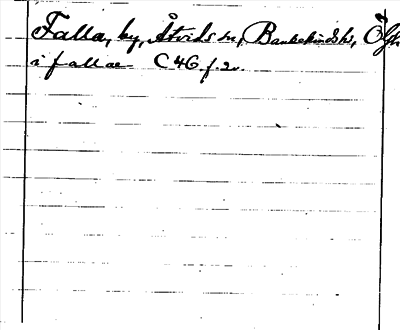 Falla, by, Åtvids sn, Bankekinds hd, Ögl
i fallae C 46 f. 2v.